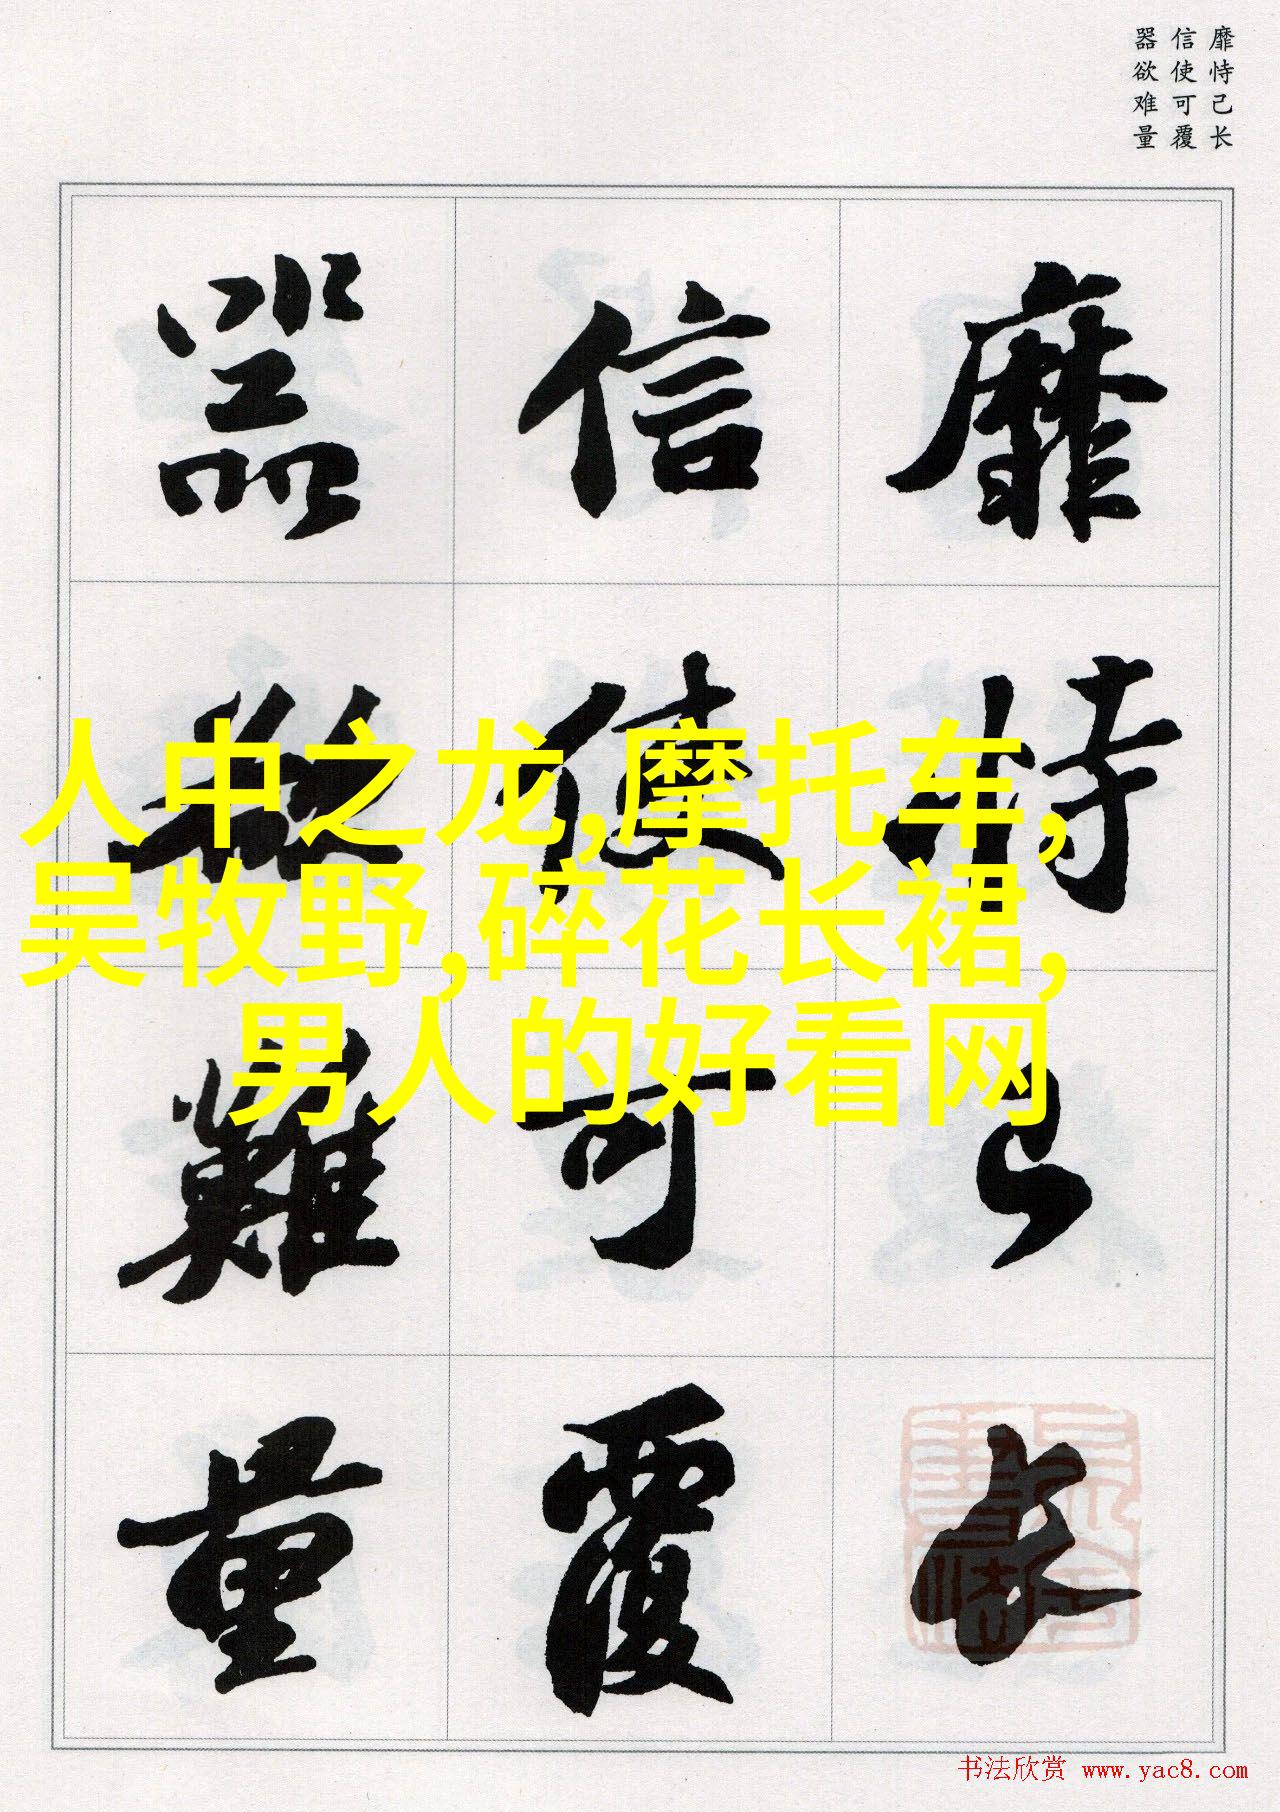 靡恃己长
信使可覆
器欲难量
靡恃己长
信使可覆
器欲難量
人中之龙,摩托车,
吴牧野,碎花长裙,
男人的好看网
书法欣赏 www.yac8.com